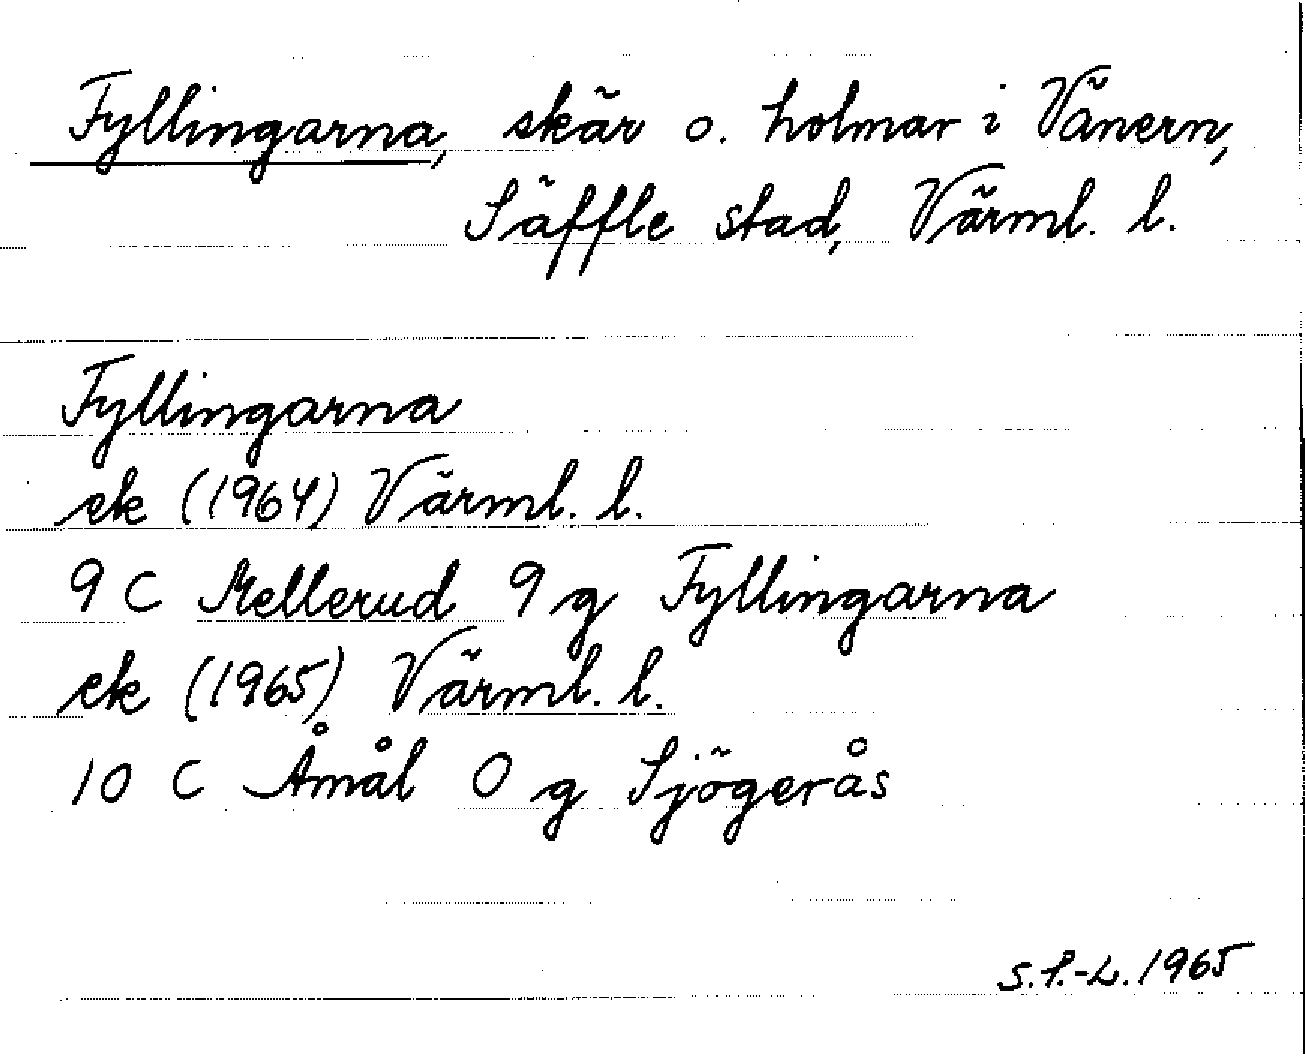 Fyllingarna, skär o. holmar i Vänern,
Säffle stad, Värml. l.
Fyllingarna
ek (1964) Värml. l.
9 C Mellerud 9 g Fyllingarna
ek (1965) Värml. l.
10 C Åmål 0 g Sjögerås
S.S.-L. 1965